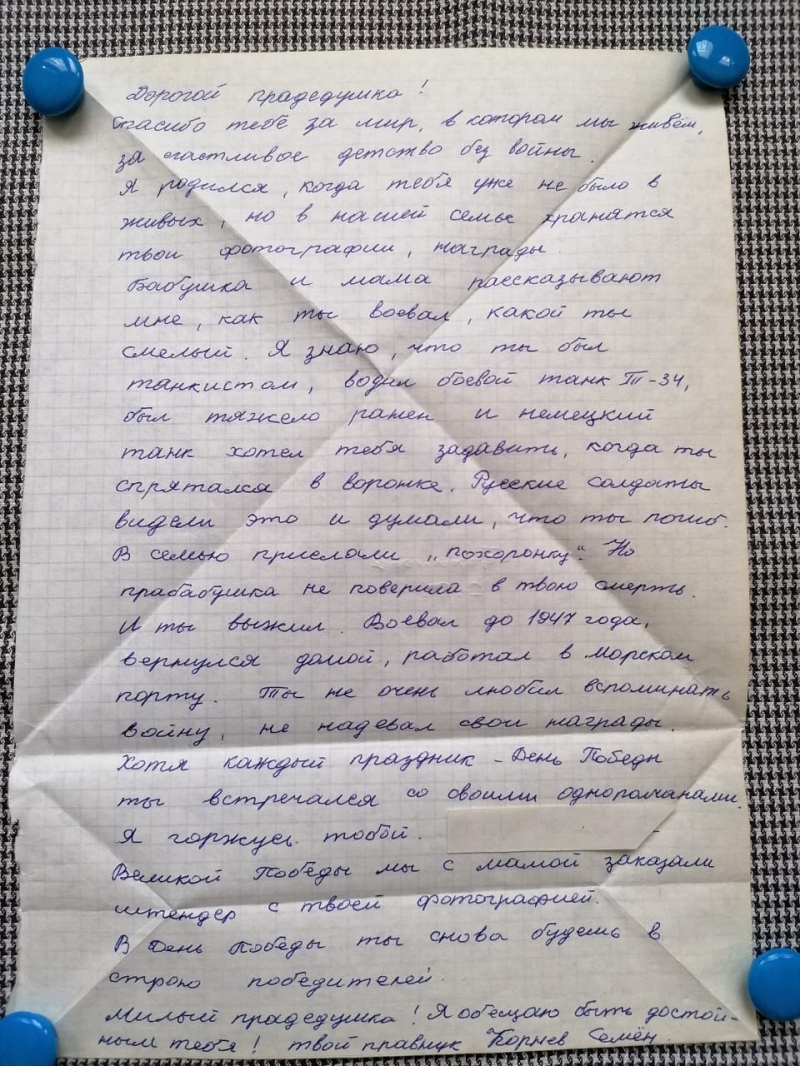 Дорогой прадедушка!
Спасибо тебе за мир, в котором мы живём,
за счастливое детство без войны.
Я родился, когда тебя уже не было в
живых, но в нашей семье хранятся
твои фотографии, награды.
Бабушка и мама рассказывают
мне, как ты воевал, какой ты
смелый. Я знаю, что ты был
танкистом, водил боевой танк Т-34,
был тяжело ранен и немецкий
танк хотел тебя задавить, когда ты
спрятался в воронке. Русские солдаты
видели это и думали, что ты погиб.
В семью прислали „похоронку“. Но
прабабушка не поверила в твою смерть.
И ты выжил. Воевал до 1947 года,
вернулся домой, работал в Морском
порту. Ты не очень любил вспоминать
войну, не надевал свои награды.
Хотя каждый праздник - День Победы
ты встречался со своими однополчанами.
Я горжусь тобой.
Великой Победы мы с мамой заказали
штендер с твоей фотографией.
В День Победы ты снова будешь в
строю победителей.
Милый прадедушка! Я обещаю быть достой-
ным тебя! твой правнук Корнев Семён.